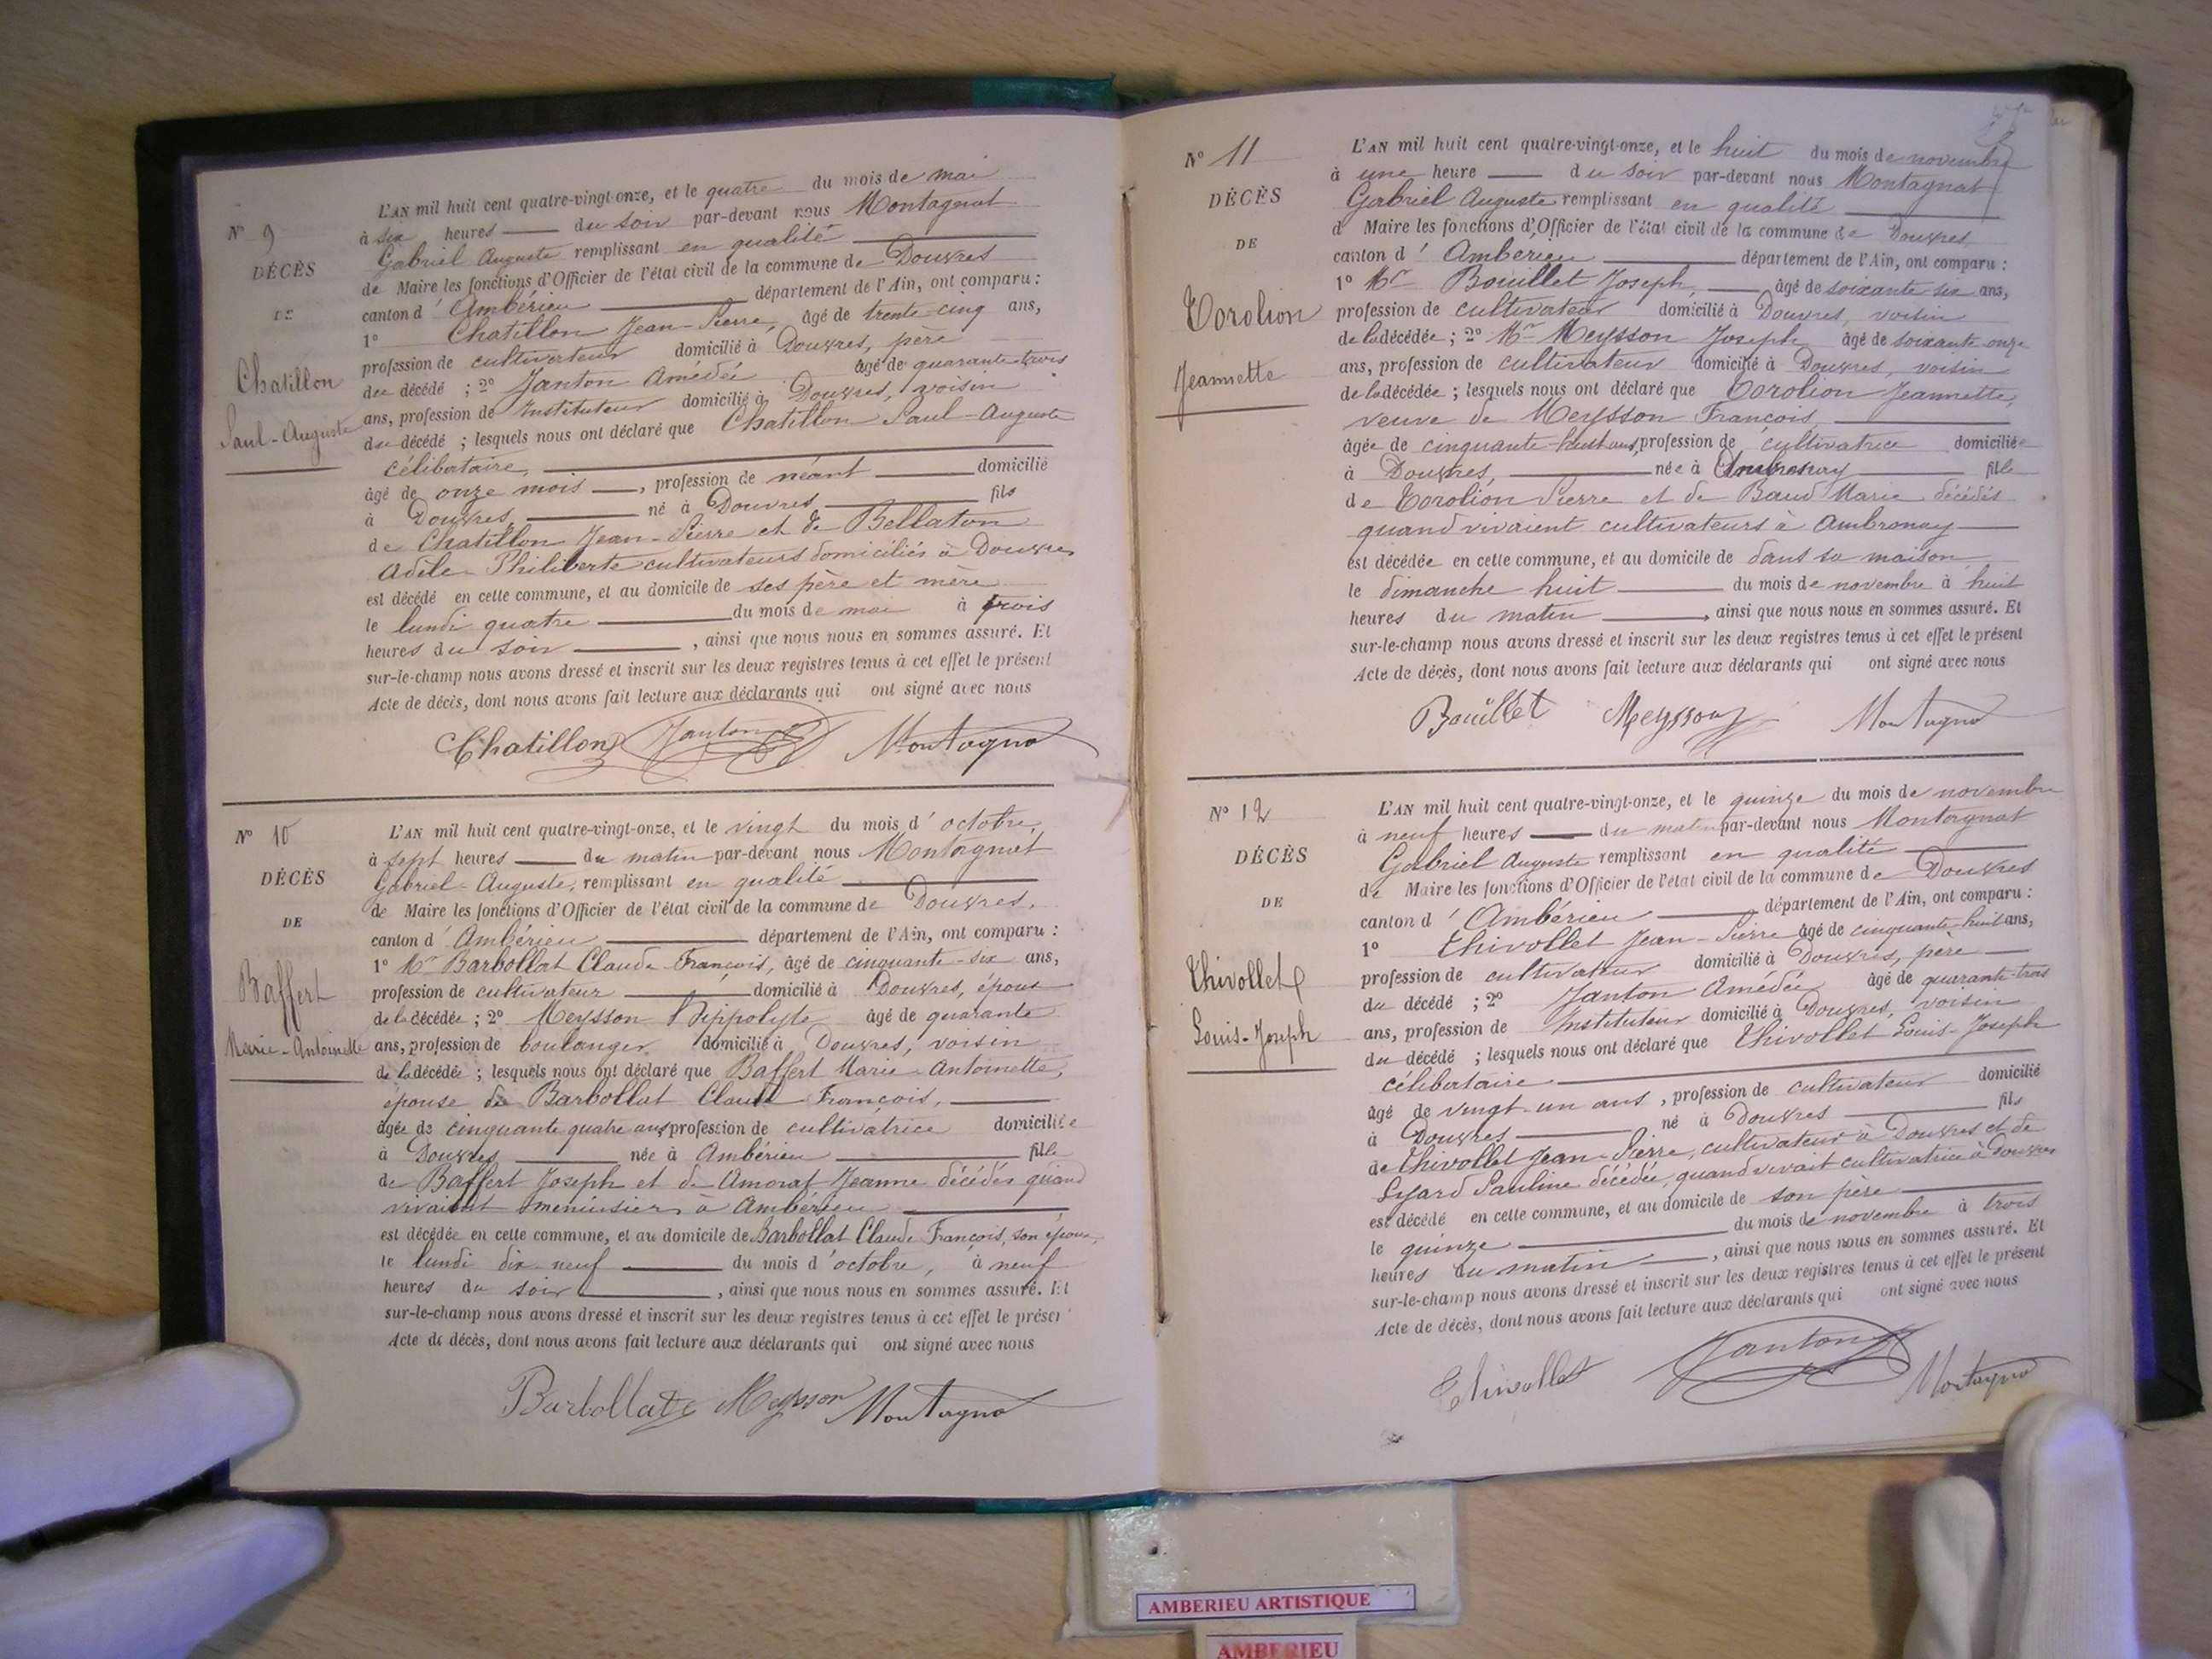 N° 9
DÉCÈS
DE
Chatillon
Paul-Auguste
L'AN mil huit cent quatre-vingt-onze, et le quatre du mois de mai
à six heures du soir par-devant nous Montagnat
Gabriel Auguste remplissant en qualité
de Maire les fonctions d'Officier de l'état civil de la commune de Douvres
canton d' Ambérieu département de l'Ain, ont comparu :
1° Chatillon Jean-Pierre, âgé de trente-cinq ans,
profession de cultivateur domicilié à Douvres, père
du décédé ; 2° Janton Amédée âgé de quarante-trois
ans, profession de Instituteur domicilié à Douvres, voisin
du décédé ; lesquels nous ont déclaré que Chatillon Paul-Auguste
célibataire,
âgé de onze mois, profession de néant domicilié
à Douvres, né à Douvres fils
de Chatillon Jean-Pierre et de Bellaton
Adèle Philiberte cultivateurs domiciliés à Douvres
est décédé en cette commune, et au domicile de ses père et mère
le lundi quatre du mois de mai à trois
heures du soir, ainsi que nous nous en sommes assuré. Et
sur-le-champ nous avons dressé et inscrit sur les deux registres tenus à cet effet le présent
Acte de décès, dont nous avons fait lecture aux déclarants qui ont signé avec nous
Chatillon Janton Montagnat
N° 10
DÉCÈS
DE
Baffert
Marie-Antoinette
L'AN mil huit cent quatre-vingt-onze, et le vingt du mois d' octobre,
à sept heures du matin par-devant nous Montagnat
Gabriel-Auguste, remplissant en qualité
de Maire les fonctions d'Officier de l'état civil de la commune de Douvres.
canton d' Ambérieu département de l'Ain, ont comparu :
1° Mr Barbollat Claude-François, âgé de cinquante-six ans,
profession de cultivateur domicilié à Douvres, époux
de la décédée ; 2° Meysson Hippolyte âgé de quarante
ans, profession de boulanger domicilié à Douvres, voisin
de la décédée ; lesquels nous ont déclaré que Baffert Marie-Antoinette,
épouse de Barbollat Claude François,
âgée de cinquante quatre ans profession de cultivatrice domiciliée
à Douvres née à Ambérieu fille
de Baffert Joseph et de Amoraf Jeanne décédés quand
vivaient menuisiers à Ambérieu
est décédée en cette commune, et au domicile de Barbollat Claude François, son époux,
le lundi dix-neuf du mois d'octobre, à neuf
heures du soir, ainsi que nous nous en sommes assuré. Et
sur-le-champ nous avons dressé et inscrit sur les deux registres tenus à cet effet le présent
Acte de décès, dont nous avons fait lecture aux déclarants qui ont signé avec nous
Barbollat Meysson Montagnat
N° 11
DÉCÈS
DE
Corolion
Jeannette
L'AN mil huit cent quatre-vingt-onze, et le huit du mois de novembre
à une heure du soir par-devant nous Montagnat
Gabriel Auguste remplissant en qualité
d Maire les fonctions d'Officier de l'état civil de la commune de Douvres
canton d' Ambérieu département de l'Ain, ont comparu :
1° Mr Bouillet Joseph, âgé de soixante six ans,
profession de cultivateur domicilié à Douvres, voisin
de la décédée ; 2° Mr Meysson Joseph âgé de soixante-onze
ans, profession de cultivateur domicilié à Douvres, voisin
de la décédée ; lesquels nous ont déclaré que Corolion Jeannette,
veuve de Meysson François,
âgée de cinquante-huit ans, profession de cultivatrice domiciliée
à Douvres, née à Ambronay fille
de Corolion Pierre et de Baud Marie décédés
quand vivaient cultivateurs à Ambronay
est décédée en cette commune, et au domicile de dans sa maison
le dimanche huit du mois de novembre à huit
heures du matin, ainsi que nous nous en sommes assuré. Et
sur-le-champ nous avons dressé et inscrit sur les deux registres tenus à cet effet le présent
Acte de décès, dont nous avons fait lecture aux déclarants qui ont signé avec nous
Bouillet Meysson Montagnat
N° 12
DÉCÈS
DE
Thivollet
Louis-Joseph
L'AN mil huit cent quatre-vingt-onze, et le quinze du mois de novembre
à neuf heures du matin par-devant nous Montagnat
Gabriel Auguste remplissant en qualité
de Maire les fonctions d'Officier de l'état civil de la commune de Douvres
canton d' Ambérieu département de l'Ain, ont comparu :
1° Thivollet Jean-Pierre âgé de cinquante-huit ans,
profession de cultivateur domicilié à Douvres, père
du décédé ; 2° Janton Amédée âgé de quarante-trois
ans, profession de Instituteur domicilié à Douvres, voisin
du décédé ; lesquels nous ont déclaré que Thivollet Louis-Joseph
célibataire
âgé de vingt-un ans, profession de cultivateur domicilié
à Douvres né à Douvres fils
de Thivollet Jean-Pierre, cultivateur à Douvres et de
Syard Pauline décédée, quand vivait cultivatrice à Douvres
est décédé en cette commune, et au domicile de son père
le quinze du mois de novembre à trois
heures du matin, ainsi que nous nous en sommes assuré. Et
sur-le-champ nous avons dressé et inscrit sur les deux registres tenus à cet effet le présent
Acte de décès, dont nous avons fait lecture aux déclarants qui ont signé avec nous
Thivollet Janton Montagnat
AMBERIEU ARTISTIQUE
AMBERIEU